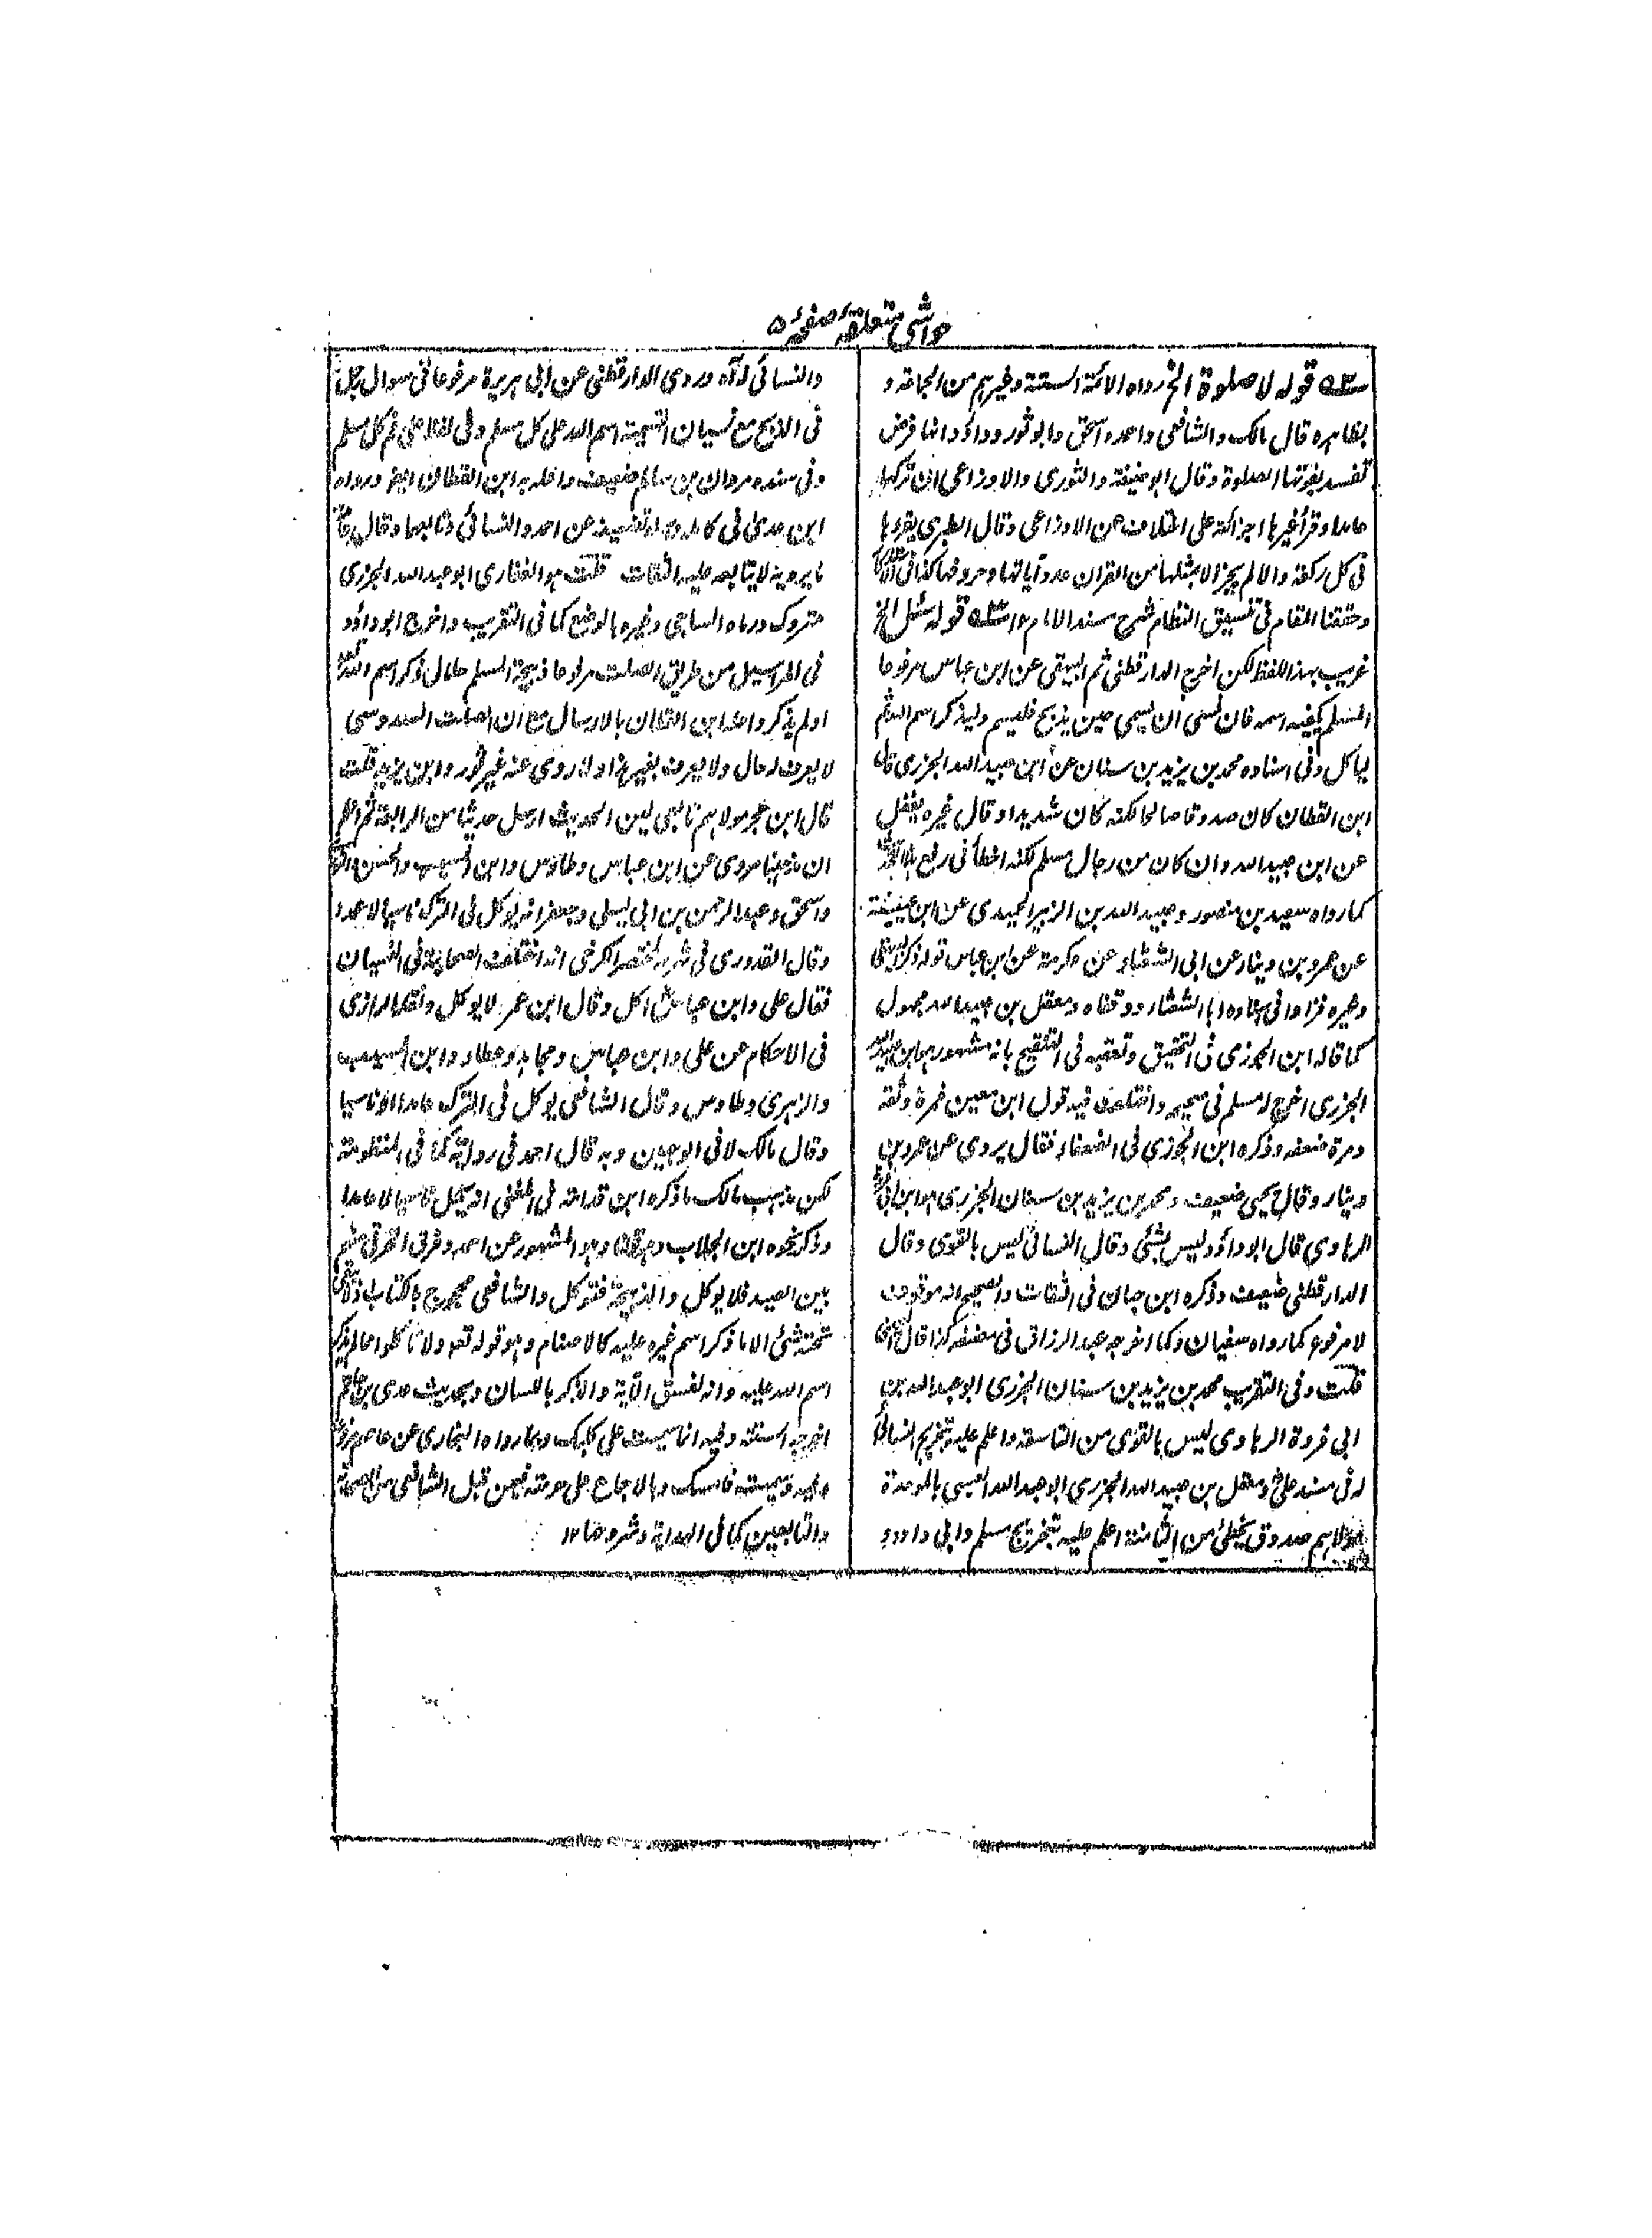 حواشی متعلقہ صفحہ ۵
قوله لا صلوة الخ رواه الائمة الستة وغيرهم من الجماعة و
بظاهره قال مالك والشافعي واحمد واسحق وابو ثور وداؤد انها فرض
تفسد بفوتها الصلوة وقال ابو حنيفة والثوري والاوزاعي ان تركها
عامدا وقرأ غيرها اجزأته على اختلاف عن الاوزاعي وقال الطبري يقرء بها
في كل ركعة والا لم يجز الا بمثلها من القران عدد آياتها وحروفها كذا في
وحققنا المقام في تنسيق النظام شرح مسند الامام ١٢ قوله مثل الخ
غريب بهذا اللفظ لكن اخرج الدارقطني ثم البيهقي عن ابن عباس مرفوعا
المسلم يكفيه اسمه فان نسي ان يسمي حين يذبح فليسم وليذكر اسم الله ثم
لياكل وفي اسناده محمد بن يزيد بن سنان عن ابن عبيد الله الجزري قال
ابن القطان كان صدوقا صالحا لكنه كان شديد او قال غيره يغفل
عن ابن عبيد الله وان كان من رجال مسلم لكنه اخطأ في رفع
كما رواه سعيد بن منصور وعبيد الله بن الزبير الحميدي عن ابن عيينة
عن عمرو بن دينار عن ابي الشعثاء عن عكرمة عن ابن عباس قوله ذكره
وغيره فزادا في اسناده ابا الشعثاء ووقفاه ومعقل بن عبيد الله مجهول
كما قاله ابن الجوزي في التحقيق وتعقبه في التنقيح بانه مشهور هو ابن عبيد الله
الجزري اخرج له مسلم في صحيحه واختلف فيه قول ابن معين فمرة وثقه
ومرة ضعفه وذكره ابن الجوزي في الضعفاء فقال يروي عن عمرو بن
دينار وقال يحيى ضعيف ومحمد بن يزيد بن سنان الجزري هو ابن ابي
الرهاوي قال ابو داؤد ليس بشئ وقال النسائي ليس بالقوي وقال
الدارقطني ضعيف وذكره ابن حبان في الثقات والصحيح انه موقوف
لا مرفوع كما رواه سفيان وكما اخرجه عبد الرزاق في مصنفه كذا قال
قلت وفي التقريب محمد بن يزيد بن سنان الجزري ابو عبد الله بن
ابي فروة الرهاوي ليس بالقوي من التاسعة واعلم عليه تخريج النسائي
له في مسند علي ومعقل بن عبيد الله الجزري ابو عبد الله العبسي بالموحدة
مولاهم صدوق يخطئ من الثامنة اعلم عليه تخريج مسلم وابي داود و
والنسائي له آه وروى الدارقطني عن ابي هريرة مرفوعا في سوال رجل
في الذبح مع نسيان التسمية اسم الله على كل مسلم وفي لفظ على فم كل مسلم
وفي سنده مروان بن سالم ضعيف واعله به ابن القطان ايضا ورواه
ابن عدي في كامله وله تضعيف عن احمد والنسائي وتابعهما وقال
ما يرويه لا يتابعه عليه الثقات قلت هو الغفاري ابو عبد الله الجزري
متروك ورماه الساجي وغيره بالوضع كما في التقريب واخرج ابو داؤد
في المراسيل من طريق الصلت مرفوعا ذبيحة المسلم حلال ذكر اسم الله
او لم يذكر واعله ابن القطان بالارسال مع ان الصلت السدوسي
لا يعرف له حال ولا يعرف بغير هذا ولا روى عنه غير ثور وابن يزيد قلت
قال ابن حجر مولاهم تابعي لين الحديث ارسل حديثا من الرابعة ثم اعلم
ان مذهبنا مروي عن ابن عباس وطاؤس وابن المسيب والحسن
واسحق وعبد الرحمن بن ابي ليلى وجعفر انه يوكل في الترك ناسيا لا عمدا
وقال القدوري في شرحه لمختصر الكرخي انه اختلفت الصحابة في النسيان
فقال علي وابن عباس اكل وقال ابن عمر لا يوكل ونقله الرازي
في الاحكام عن علي وابن عباس ومجاهد وعطاء وابن المسيب
والزهري وطاوس وقال الشافعي يوكل في الترك عامدا او ناسيا
وقال مالك لا في الوجهين وبه قال احمد في رواية كما في المنظومة
لكن مذهب مالك ما ذكره ابن قدامة في المغني انه يحل ناسيا لا عامدا
وذكر نحوه ابن الجلاب وهو المشهور عن احمد وفرق الخرقي منهم
بين الصيد فلا يوكل والذبيحة فتوكل والشافعي محجوج بالكتاب
تحته شئ الا ما ذكر اسم غيره عليه كالاصنام وهو قوله تعم ولا تأكلوا مما لم يذكر
اسم الله عليه وانه لفسق الآية والذكر باللسان وبحديث عدي بن حاتم
اخرجه الستة وفيه انما سميت على كلبك وبما رواه البخاري عن عاصم
عليه وسميت فامسك وبالاجماع على حرمته فيمن قبل الشافعي من الصحابة
والتابعين كما في الهداية وشروحها ١٢